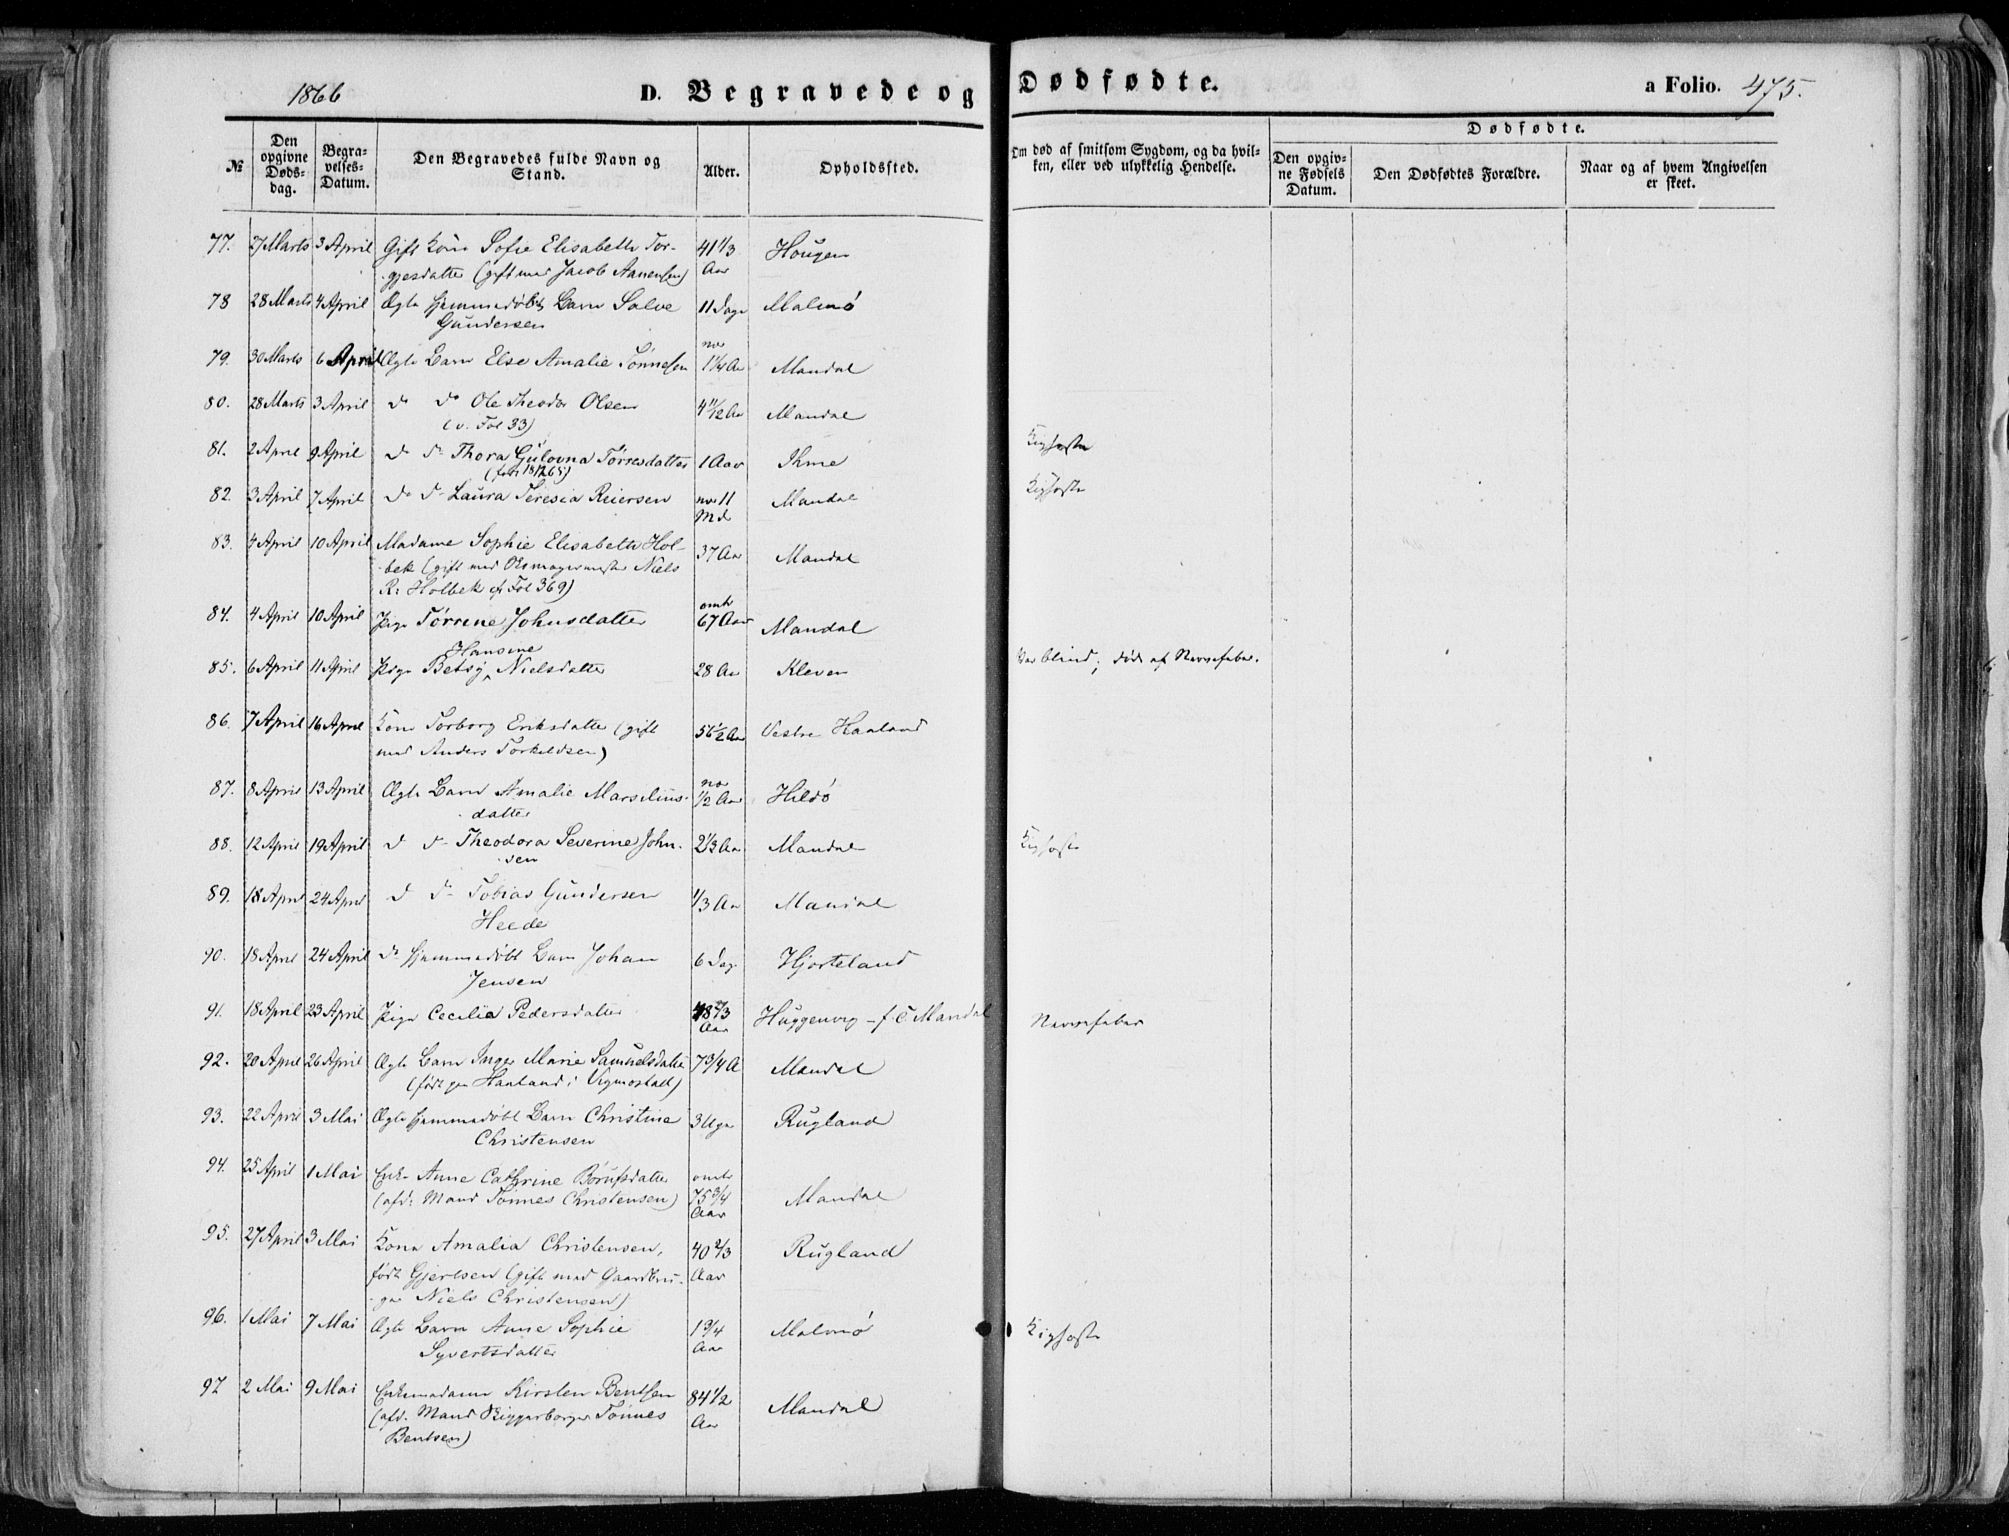 1866 D. Begravede og Dødfødte. a Folio. 475.
Dødfødte.
№ Den opgivne Døds-dag. Begra-velses-Datum. Den Begravedes fulde Navn og Stand. Alder. Opholdssted. Om død af smitsom Sygdom, og da hvil-ken, eller ved ulykkelig Hendelse. Den opgiv-ne Fødsels Datum. Den Dødfødtes Forældre. Naar og af hvem Angivelsen er skeet.
77. 27 Marts 3 April Gift Kone Sofie Elisabeth Tor- 41 1/3 Hougen
gjesdatter (gift med Jacob Aanensen) Aar
78 28 Marts 4 April Ægte hjemmedøbt Barn Salve 11 Dage Malmø
Gundersen
79. 30 Marts 6 April Ægte Barn Else Amalie Tønnesen 1 1/4 Aar Mandal
80. 28 Marts 3 April do do Ole Theodor Olsen 4 11/12 Aar Mandal
(v. Fol 33)
81. 2 April 9 April do do Thora Gulovna Tørresdatter 1 Aar Ime Kighoste
82. 3 April 7 April do do Laura Teresia Reiersen 11 Mandal Kighoste
Md
83. 4 April 10 April Madame Sophie Elisabeth Hol- 37 Aar Mandal
bek (gift med Skomagermester Niels
R: Holbek cf Fol 369)
84. 4 April 10 April Pige Tørrine Johnsdatter omtr 67 Aar Mandal
Hansine
85. 6 April 11 April Pige Betsy Nielsdatter 28 Aar Kleven Var blind; død af Nervefeber.
86. 7 April 16 April Kone Torborg Eriksdatter (gift 56 1/2 Aar Vestre Haaland
med Anders Torkeldsen)
87. 8 April 13 April Ægte Barn Amalie Marselius- 1/2 Aar Hildø
datter
88. 12 April 19 April d do Theodora Severine John- 2 1/3 Aar Mandal Kighoste
sen
89. 18 April 24 April d do Tobias Gundersen 1/3 Aar Mandal
Heede
90. 18 April 24 April do hjemmedøbt Barn Johan 6 Dage Hjorteland
Jensen
91. 18 April 23 April Pige Cecilia Pedersdatter 48 2/3 Huggenvig - f. C. Mandal Nervefeber
Aar
92. 20 April 26 April Ægte Barn Inger Marie Samuelsdatter 7 3/4 A Mandal
(født paa Haaland i Vigmostad)
93. 22 April 3 Mai Ægte hjemmedøbt Barn Christine 3 Uger Rugland
Christensen
94. 25 April 1 Mai Enke Anne Cathrine Børufsdatter omtr
(afd. Mand Tønnes Christensen) 75 3/4 Mandal
Aar
95. 27 April 3 Mai Kone Amalia Christensen, 40 2/3 Rugland
født Gjertsen (gift med Gaardbru- Aar
ger Niels Christensen)
96. 1 Mai 7 Mai Ægte Barn Anne Sophie 1 3/4 Malmø Kighoste
Syvertsdatter Aar
97 2 Mai 9 Mai Enkemadame Kirsten Bentsen 84 1/2 Mandal
(afd. Mand Tønnes Aar
Bentsen)